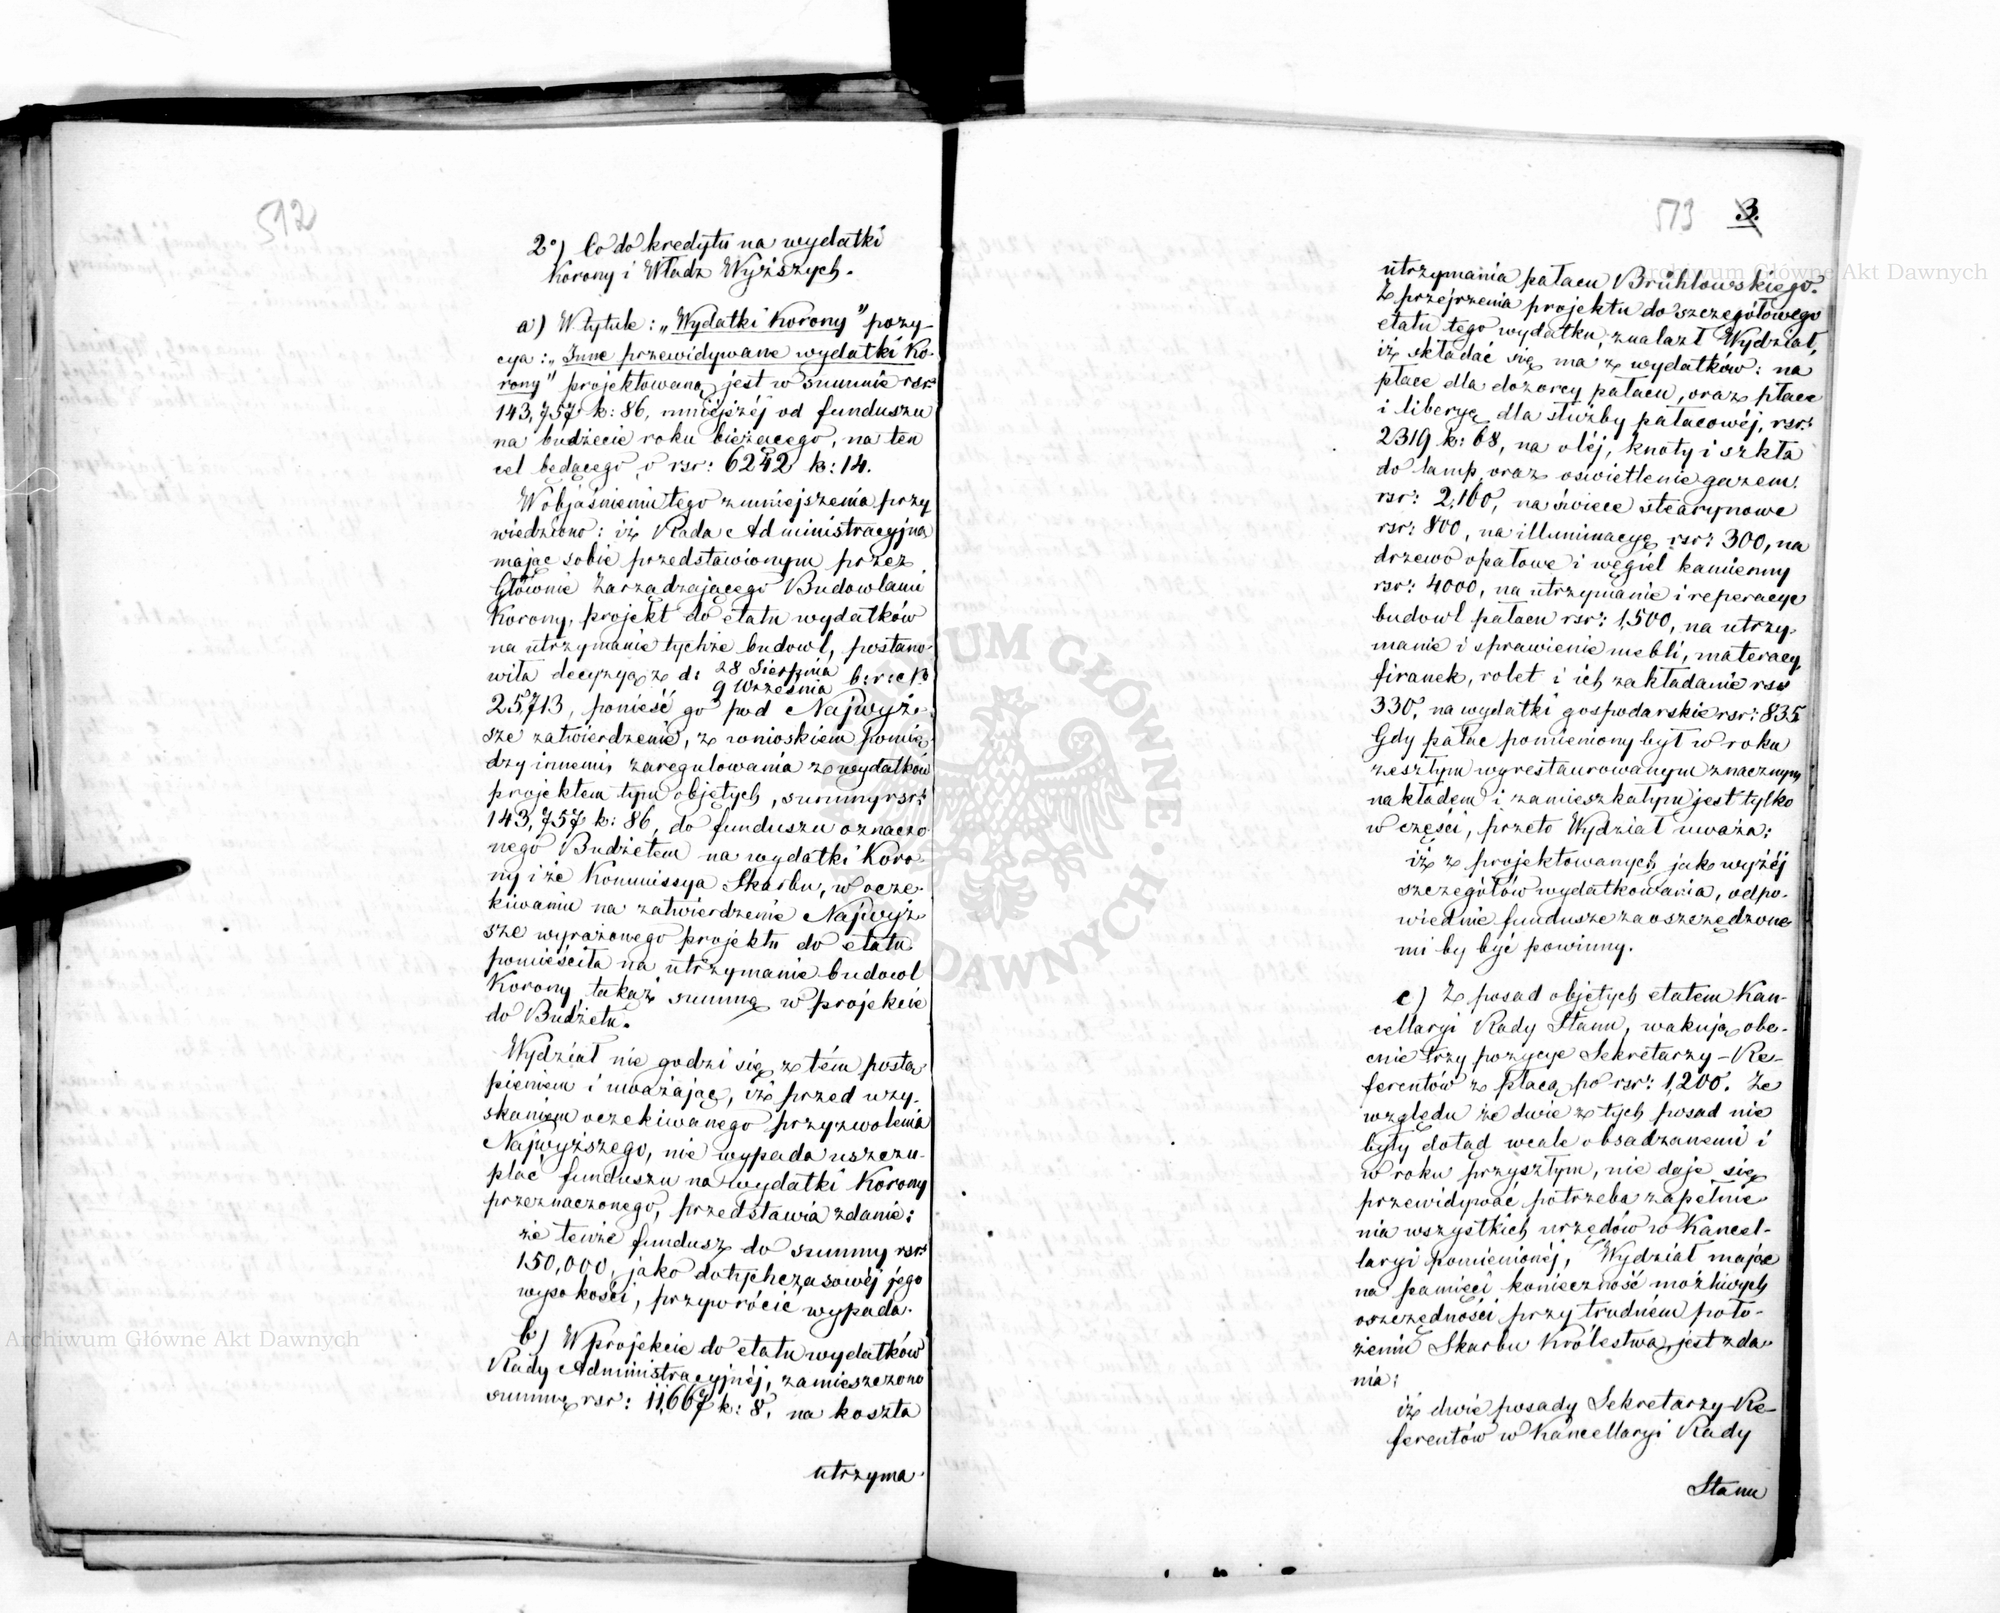 512
2°) Co do kredytu na wydatki
Korony i Władz Wyższych.
a) W tytule: „Wydatki Korony" pozy-
cya: „Inne przewidywane wydatki Ko-
rony" projektowaną jest w summie rsr:
143,757 k: 86, mniejszéj od funduszu
na budżecie roku bieżącego, na ten
cel będącego, o rsr: 6242 k: 14.
W objaśnieniu tego zmniejszenia przy
wiedziono: iż Rada Administracyjna
mając sobie przedstawionym przez
Głównie Zarządzającego Budowlami
Korony, projekt do etatu wydatków
na utrzymanie tychże budowl, postano-
wiła decyzyą z d: 28 Sierpnia / 9 Września b: r: N°
25,713, ponieść go pod Najwyż-
sze zatwierdzenie, z wnioskiem pomię-
dzy innemi, zaregulowania z wydatków
projektem tym objętych, summy rsr:
143,757 k: 86, do funduszu oznaczo-
nego Budżetem na wydatki Koro-
ny i że Kommissya Skarbu, w ocze-
kiwaniu na zatwierdzenie Najwyż-
sze wyrażonego projektu do etatu
pomieściła na utrzymanie budowl
Korony, takąż summę w projekcie
do Budżetu.
Wydział nie godzi się z tém postą-
pieniem i uważając, iż przed uzy-
skaniem oczekiwanego przyzwolenia
Najwyższego, nie wypada uszczu-
plać funduszu na wydatki Korony
przeznaczonego, przedstawia zdanie:
że tenże fundusz do summy rsr:
150,000, jako dotychczasowéj jego
wysokości, przywrócić wypada.
b) W projekcie do etatu wydatków
Rady Administracyjnéj, zamieszczono
summę rsr: 11,667 k: 8, na koszta
utrzyma-
513 3.
utrzymania pałacu Brühlowskiego.
Z przejrzenia projektu do szczegółowego
etatu tego wydatku, znalazł Wydział,
iż składać się ma z wydatków: na
płace dla dozorcy pałacu, oraz płace
i liberyę dla służby pałacowéj, rsr:
2319 k: 68, na oléj, knoty i szkła
do lamp, oraz oświetlenie gazem
rsr: 2,100, na świece stearynowe
rsr: 800, na illuminacyę rsr: 300, na
drzewo opałowe i węgiel kamienny
rsr: 4000, na utrzymanie i reperacye
budowl pałacu rsr: 1,500, na utrzy-
manie i sprawienie mebli, materacy,
firanek, rolet i ich zakładanie rsr:
330, na wydatki gospodarskie rsr: 835.
Gdy pałac pomieniony był w roku
zeszłym wyrestaurowanym znacznym
nakładem i zamieszkałym jest tylko
w części, przeto Wydział uważa:
iż z projektowanych jak wyżéj
szczegółów wydatkowania, odpo-
wiednie fundusze zaoszczędzone-
mi by być powinny.
c) Z posad objętych etatem Kan-
cellaryi Rady Stanu, wakują obe-
cnie trzy pozycye Sekretarzy-Re-
ferentów z płacą po rsr: 1,200. Ze
względu że dwie z tych posad nie
były dotąd wcale obsadzanemi i
w roku przyszłym, nie daje się
przewidywać potrzeba zapełnie-
nia wszystkich urzędów w Kancel-
laryi pomienionéj, Wydział mając
na pamięci konieczność możliwych
oszczędności przy trudném poło-
żeniu Skarbu Królestwa, jest zda-
nia:
iż dwie posady Sekretarzy-Re-
ferentów w Kancellaryi Rady
Stanu
Archiwum Główne Akt Dawnych
Archiwum Główne Akt Dawnych
ARCHIWUM GŁÓWNE AKT DAWNYCH